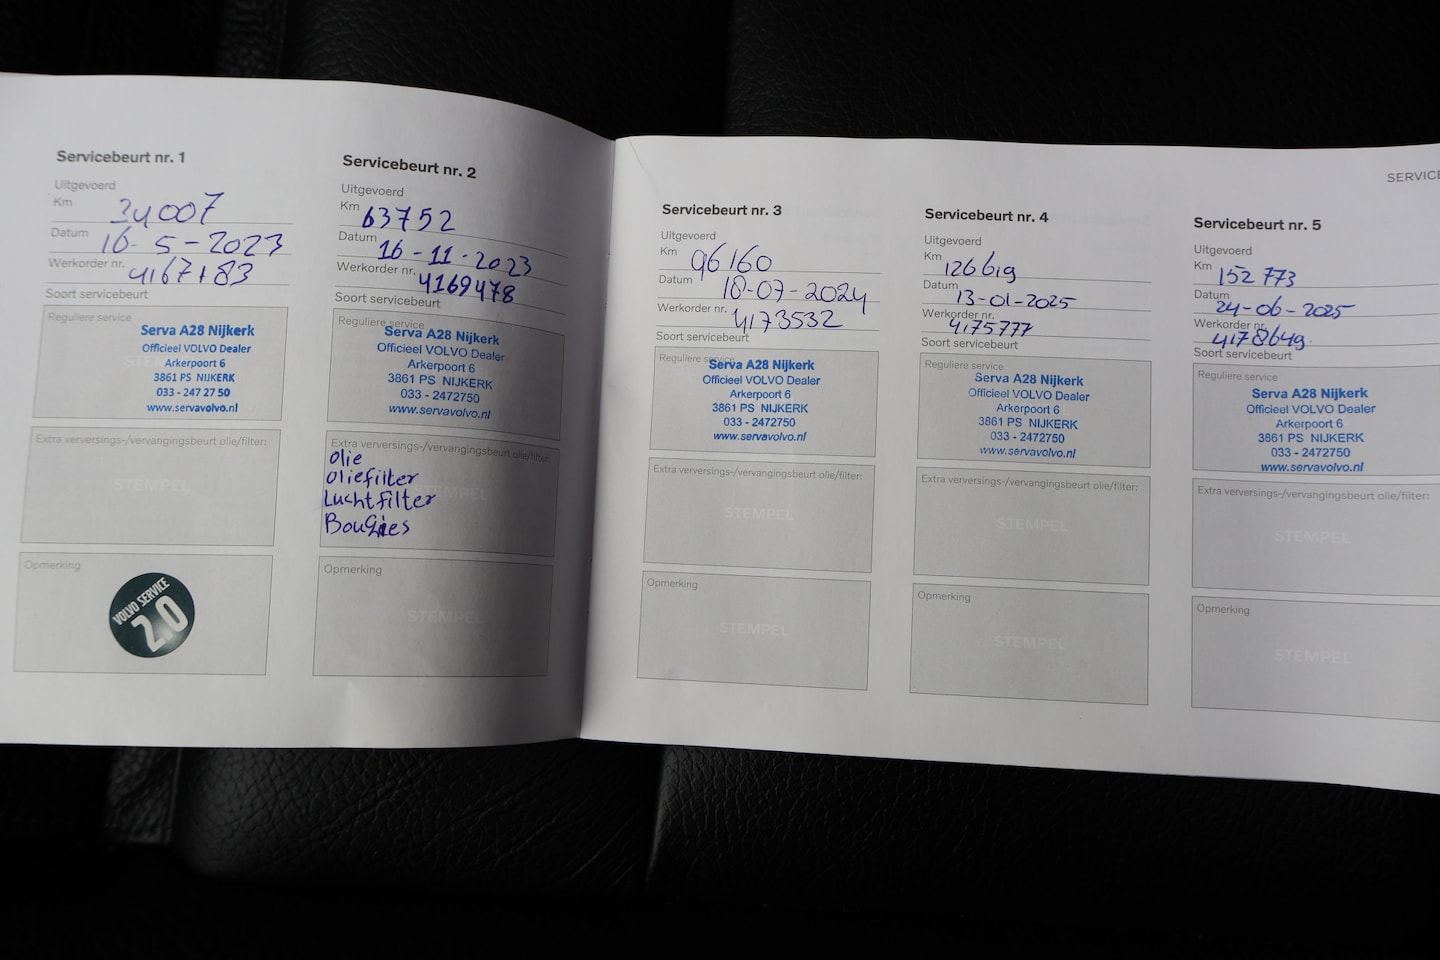 Servicebeurt nr. 1
Uitgevoerd
Km 34007
Datum 16-5-2023
Werkorder nr. 4167183
Soort servicebeurt
Reguliere service
Serva A28 Nijkerk
Officieel VOLVO Dealer
Arkerpoort 6
3861 PS NIJKERK
033 - 247 27 50
www.servavolvo.nl
Extra verversings-/vervangingsbeurt olie/filter:
STEMPEL
Opmerking
VOLVO SERVICE
2.0
Servicebeurt nr. 2
Uitgevoerd
Km 63752
Datum 16-11-2023
Werkorder nr. 4169478
Soort servicebeurt
Reguliere service
Serva A28 Nijkerk
Officieel VOLVO Dealer
Arkerpoort 6
3861 PS NIJKERK
033 - 2472750
www.servavolvo.nl
Extra verversings-/vervangingsbeurt olie/filter:
olie
oliefilter
Luchtfilter
Bougies
STEMPEL
Opmerking
STEMPEL
SERVICE
Servicebeurt nr. 3
Uitgevoerd
Km 96160
Datum 18-07-2024
Werkorder nr. 4173532
Soort servicebeurt
Reguliere service
Serva A28 Nijkerk
Officieel VOLVO Dealer
Arkerpoort 6
3861 PS NIJKERK
033 - 2472750
www.servavolvo.nl
Extra verversings-/vervangingsbeurt olie/filter:
STEMPEL
Opmerking
STEMPEL
Servicebeurt nr. 4
Uitgevoerd
Km 126619
Datum 13-01-2025
Werkorder nr. 4175777
Soort servicebeurt
Reguliere service
Serva A28 Nijkerk
Officieel VOLVO Dealer
Arkerpoort 6
3861 PS NIJKERK
033 - 2472750
www.servavolvo.nl
Extra verversings-/vervangingsbeurt olie/filter:
STEMPEL
Opmerking
STEMPEL
Servicebeurt nr. 5
Uitgevoerd
Km 152773
Datum 24-06-2025
Werkorder nr. 4178649
Soort servicebeurt
Reguliere service
Serva A28 Nijkerk
Officieel VOLVO Dealer
Arkerpoort 6
3861 PS NIJKERK
033 - 2472750
www.servavolvo.nl
Extra verversings-/vervangingsbeurt olie/filter:
STEMPEL
Opmerking
STEMPEL